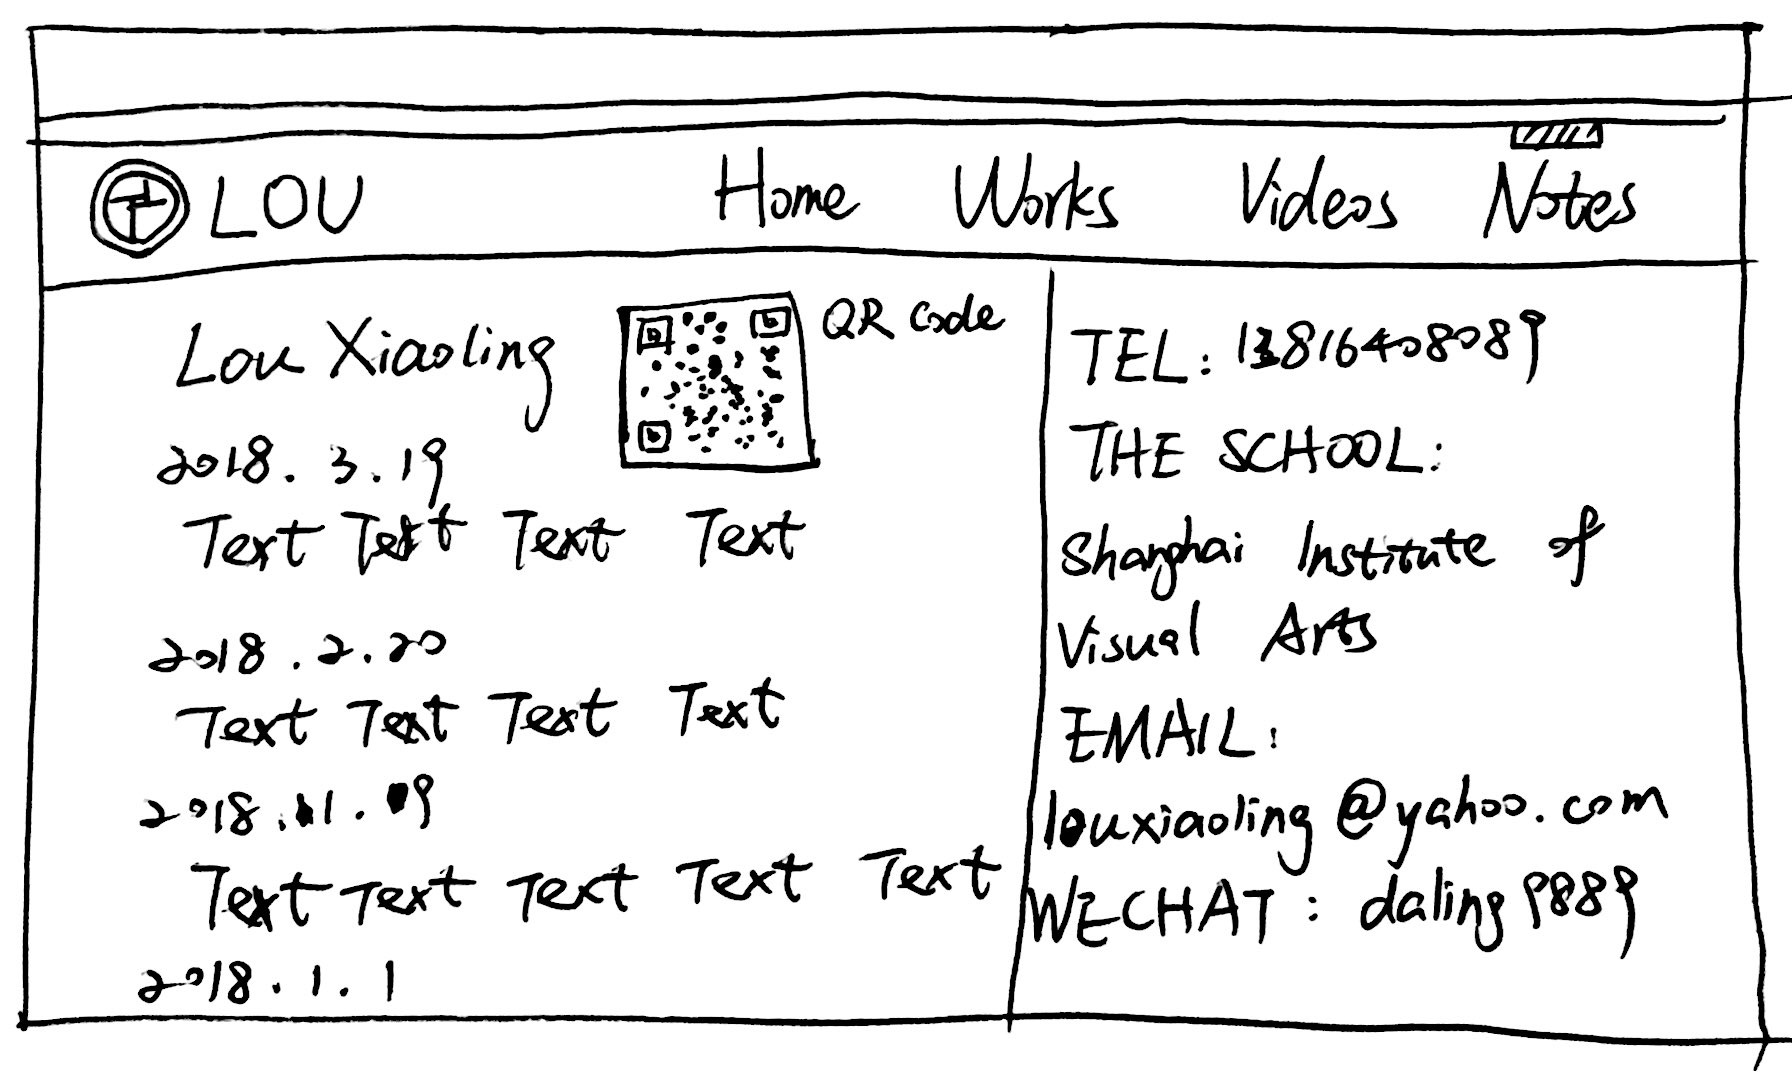 LOU Home Works Videos Notes
Lou Xiaoling
QR code
2018.3.19
Text Text Text Text
2018.2.20
Text Text Text Text
Text Text Text Text Text
2018.1.1
TEL: 13816408089
THE SCHOOL:
Shanghai Institute of
Visual Arts
EMAIL:
louxiaoling@yahoo.com
WECHAT: daling9889